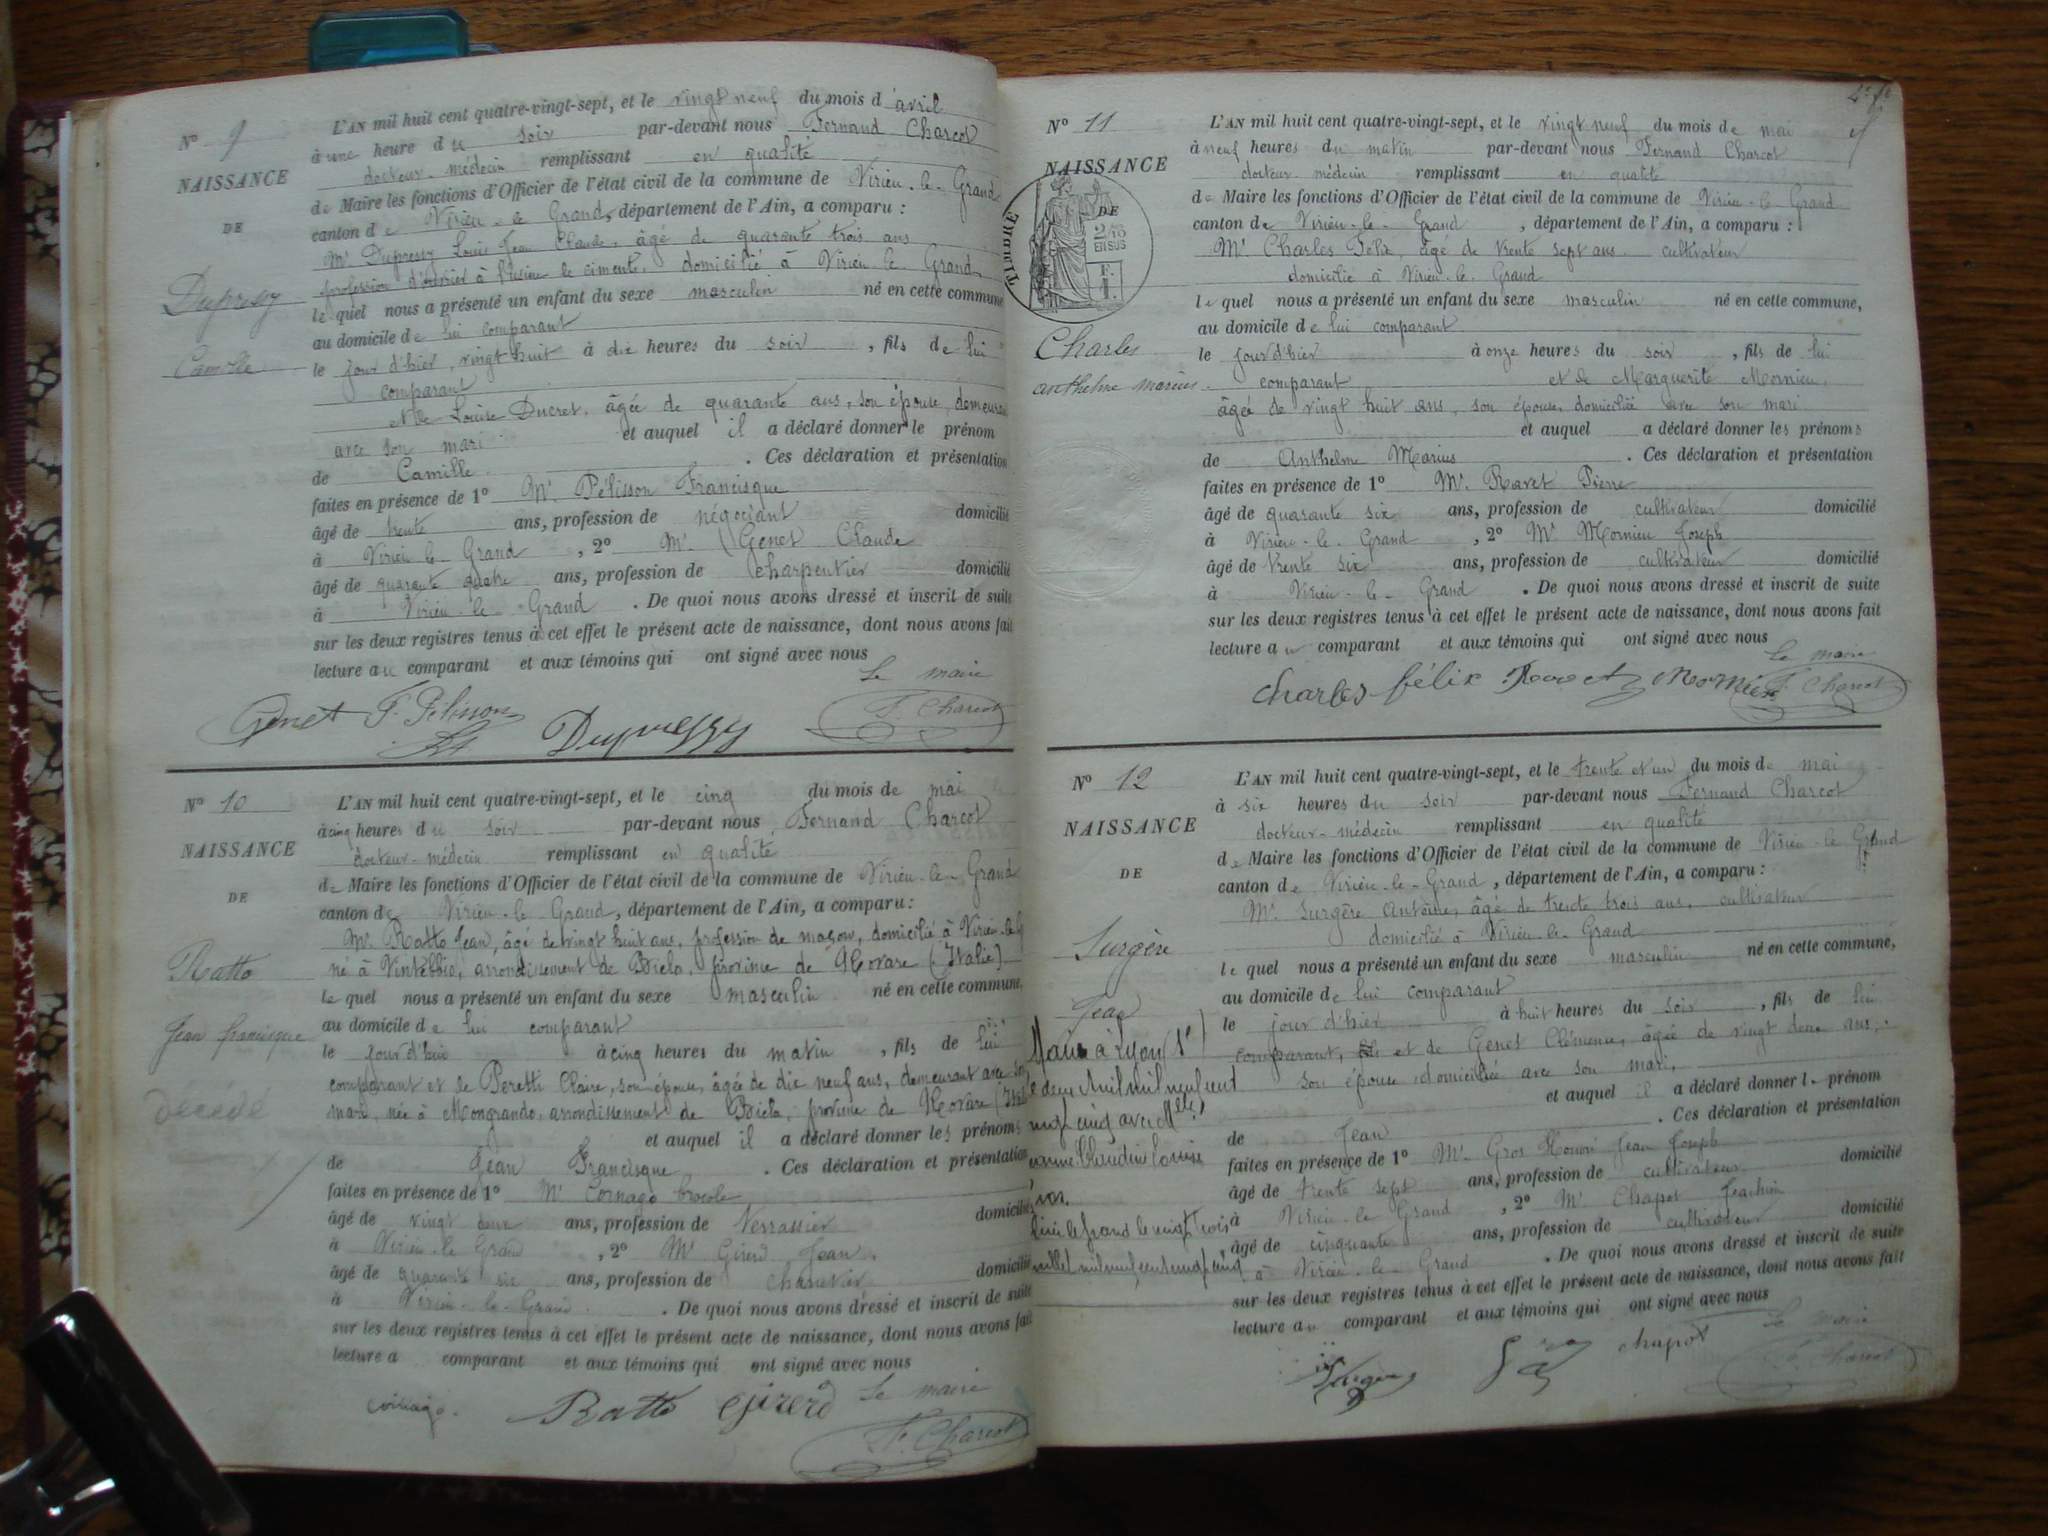 N° 9
NAISSANCE
DE
Dupressy
Camille
L'AN mil huit cent quatre-vingt-sept, et le vingt neuf du mois d'avril
à une heure du soir par-devant nous Fernand Charcot
docteur-médecin remplissant en qualité
de Maire les fonctions d'Officier de l'état civil de la commune de Virieu-le-Grand
canton de Virieu-le-Grand, département de l'Ain, a comparu :
Mr Dupressy Louis Jean Claude, âgé de quarante trois ans
profession d'ouvrier à l'usine de ciment, domicilié à Virieu le Grand
lequel nous a présenté un enfant du sexe masculin né en cette commune
au domicile de lui comparant
le jour d'hier, vingt huit à dix heures du soir, fils de lui
comparant
et de Louise Ducret, âgée de quarante ans, son épouse, demeurant
avec son mari et auquel il a déclaré donner le prénom
de Camille. Ces déclaration et présentation
faites en présence de 1° Mr Pélisson Francisque
âgé de trente ans, profession de négociant domicilié
à Virieu-le-Grand, 2° Mr Genet Claude
âgé de quarante quatre ans, profession de charpentier domicilié
à Virieu-le-Grand. De quoi nous avons dressé et inscrit de suite
sur les deux registres tenus à cet effet le présent acte de naissance, dont nous avons fait
lecture au comparant et aux témoins qui ont signé avec nous
Le maire
Genet F. Pélisson Dupressy F. Charcot
N° 10
NAISSANCE
DE
Ratto
Jean francisque
décédé
L'AN mil huit cent quatre-vingt-sept, et le cinq du mois de mai
à cinq heures du soir par-devant nous Fernand Charcot
docteur-médecin remplissant en qualité
de Maire les fonctions d'Officier de l'état civil de la commune de Virieu-le-Grand
canton de Virieu-le-Grand, département de l'Ain, a comparu :
Mr Ratto Jean, âgé de vingt huit ans, profession de maçon, domicilié à Virieu-le-G
né à Vintebbio, arrondissement de Biela, province de Novare (Italie)
lequel nous a présenté un enfant du sexe masculin né en cette commune,
au domicile de lui comparant
le jour d'hui à cinq heures du matin, fils de lui
comparant et de Peretti Claire, son épouse, âgée de dix neuf ans, demeurant avec son
mari, née à Mongrando, arrondissement de Biela, province de Novare (Ital
et auquel il a déclaré donner les prénoms
de Jean Francisque. Ces déclaration et présentation
faites en présence de 1° Mr Cornago
âgé de vingt deux ans, profession de Terrassier domicilié
à Virieu-le-Grand, 2° Mr Girerd Jean.
âgé de quarante six ans, profession de charretier domicilié
à Virieu-le-Grand. De quoi nous avons dressé et inscrit de suite
sur les deux registres tenus à cet effet le présent acte de naissance, dont nous avons fait
lecture a comparant et aux témoins qui ont signé avec nous
Le maire
Ratto Girerd F. Charcot
N° 11
NAISSANCE
DE
TIMBRE
EN SUS
Charles
anthelme marius
L'AN mil huit cent quatre-vingt-sept, et le vingt neuf du mois de mai
à neuf heures du matin par-devant nous Fernand Charcot
docteur-médecin remplissant en qualité
de Maire les fonctions d'Officier de l'état civil de la commune de Virieu-le-Grand
canton de Virieu-le-Grand, département de l'Ain, a comparu :
Mr Charles Félix, âgé de trente sept ans cultivateur
domicilié à Virieu-le-Grand
lequel nous a présenté un enfant du sexe masculin né en cette commune,
au domicile de lui comparant
le jour d'hier à onze heures du soir, fils de lui
comparant et de Marguerite Mornieu,
âgée de vingt huit ans, son épouse, domiciliée avec son mari
et auquel a déclaré donner les prénoms
de Anthelme Marius. Ces déclaration et présentation
faites en présence de 1° Mr Ravet Pierre
âgé de quarante six ans, profession de cultivateur domicilié
à Virieu-le-Grand, 2° Mr Mornieu Joseph
âgé de trente six ans, profession de cultivateur domicilié
à Virieu-le-Grand. De quoi nous avons dressé et inscrit de suite
sur les deux registres tenus à cet effet le présent acte de naissance, dont nous avons fait
lecture au comparant et aux témoins qui ont signé avec nous
Le maire
Charles félix Ravet Mornieu F. Charcot
N° 12
NAISSANCE
DE
Surgère
Jean
L'AN mil huit cent quatre-vingt-sept, et le trente et un du mois de mai
à six heures du soir par-devant nous Fernand Charcot
docteur-médecin remplissant en qualité
de Maire les fonctions d'Officier de l'état civil de la commune de Virieu-le-Grand
canton de Virieu-le-Grand, département de l'Ain, a comparu :
Mr Surgère Antoine, âgé de trente trois ans, cultivateur
domicilié à Virieu-le-Grand
lequel nous a présenté un enfant du sexe masculin né en cette commune,
au domicile de lui comparant
le jour d'hier à huit heures du soir, fils de lui
comparant, et de Genet Clémence, âgée de vingt deux ans,
son épouse domiciliée avec son mari,
et auquel il a déclaré donner le prénom
de Jean. Ces déclaration et présentation
faites en présence de 1° Mr Gros Honoré Jean Joseph
âgé de trente sept ans, profession de cultivateur domicilié
à Virieu-le-Grand, 2° Mr Chapot Joachim
âgé de cinquante ans, profession de cultivateur domicilié
à Virieu-le-Grand. De quoi nous avons dressé et inscrit de suite
sur les deux registres tenus à cet effet le présent acte de naissance, dont nous avons fait
lecture au comparant et aux témoins qui ont signé avec nous
Le maire
Surgère chapot F. Charcot